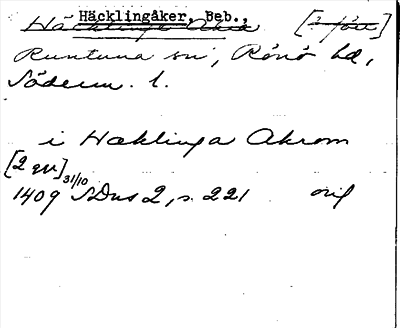 Häcklingåker, Beb.,
Häcklinge Åkra [? förs]
Runtuna sn, Rönö hd,
Söderm. l.
i Hæklinga Akrom
[2 ggr]
1409 31/10 SDns 2, s. 221 orig